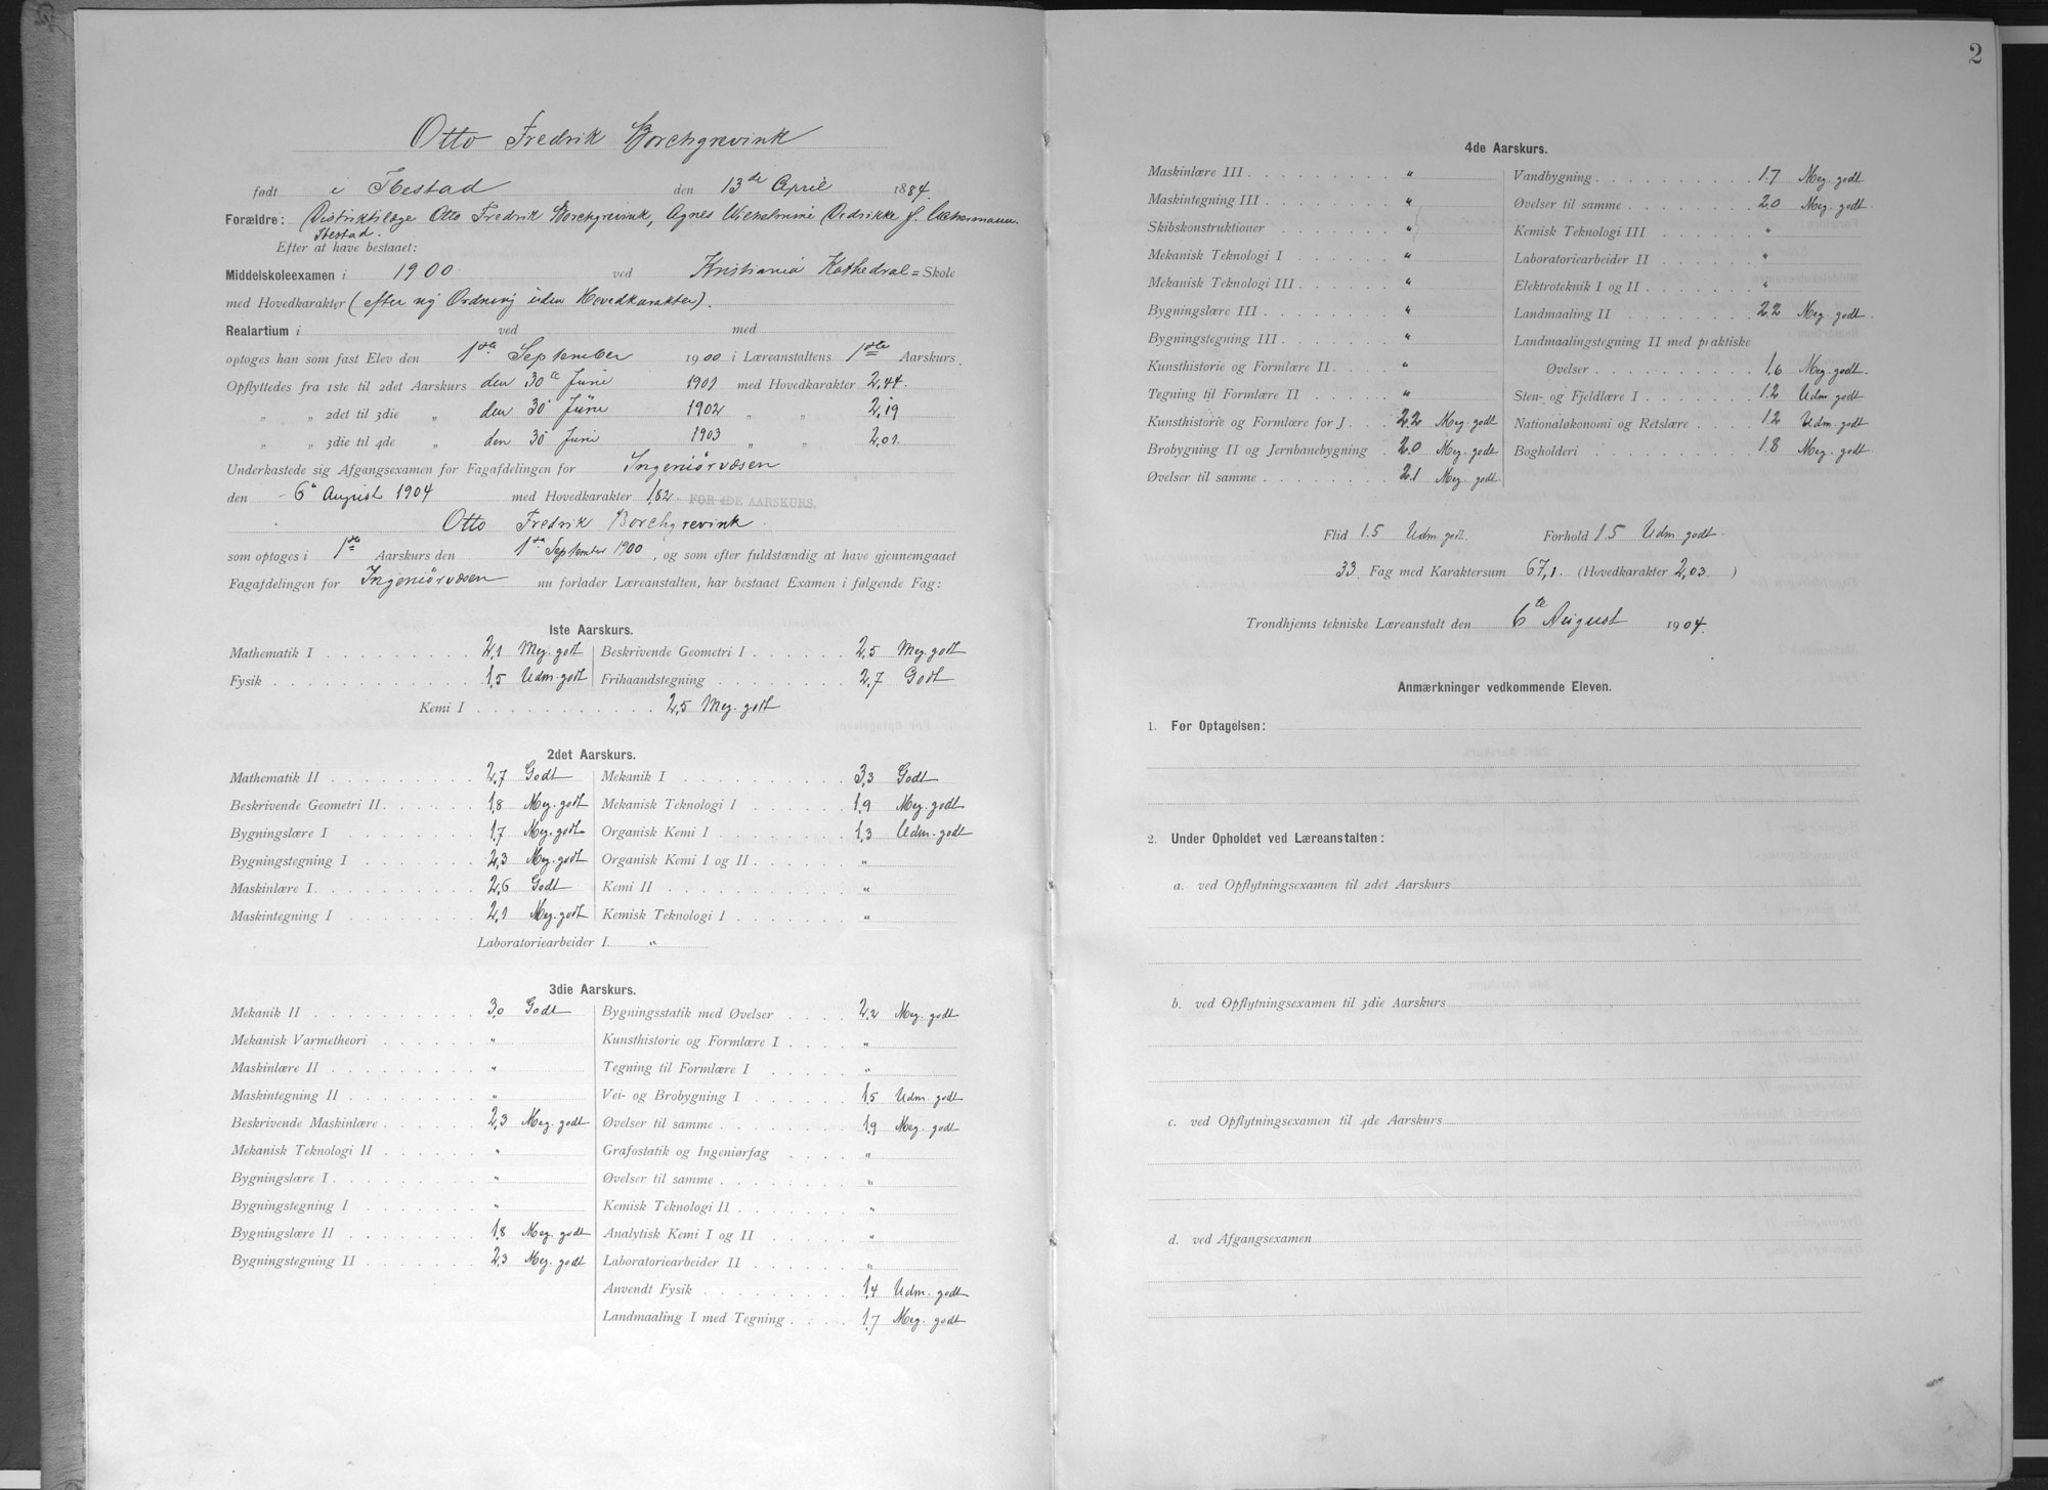 Otto Fredrik Borchgrevink
født i Ibestad den 13de April 1884.
Forældre: Distriktslæge Otto Fredrik Borchgrevink, Agnes Wilhelmine Didrikke f.
Ibestad.
Efter at have bestaaet:
Middelskoleexamen i 1900 ved Kristiania Kathedral = Skole
med Hovedkarakter (efter ny Ordning uden Hovedkarakter).
Realartium i ved med
optoges han som fast Elev den 1ste September 1900 i Læreanstaltens 1ste Aarskurs.
Opflyttedes fra 1ste til 2det Aarskurs den 30te Juni 1901 med Hovedkarakter 2,44.
„ „ 2det til 3die „ den 30 Juni 1902 „ „ 2,19
„ „ 3die til 4de „ den 30 Juni 1903 „ „ 2,01.
Underkastede sig Afgangsexamen for Fagafdelingen for Ingeniörvæsen
den 6te August 1904 med Hovedkarakter 1,82 FOR 4DE AARSKURS.
Otto Fredrik Borchgrevink
som optoges i 1ste Aarskurs den 1ste September 1900, og som efter fuldstændig at have gjennemgaaet
Fagafdelingen for Ingeniörvæsen nu forlader Læreanstalten, har bestaaet Examen i følgende Fag:
1ste Aarskurs.
Mathematik I 2,1 Meg. godt Beskrivende Geometri I 2,5 Meg. godt
Fysik 1,5 Udm. godt Frihaandstegning 2,7 Godt
Kemi I 2,5 Meg. godt
2det Aarskurs.
Mathematik II 2,7 Godt Mekanik I 3,3 Godt
Beskrivende Geometri II 1,8 Meg. godt Mekanisk Teknologi I 1,9 Meg. godt
Bygningslære I 1,7 Meg. godt Organisk Kemi I 1,3 Udm. godt
Bygningstegning I 2,3 Meg. godt Organisk Kemi I og II "
Maskinlære I 2,6 Godt Kemi II "
Maskintegning I 2,1 Meg. godt Kemisk Teknologi I "
Laboratoriearbeider I "
3die Aarskurs.
Mekanik II 3,0 Godt Bygningsstatik med Øvelser 2,2 Meg. godt
Mekanisk Varmetheori " Kunsthistorie og Formlære I "
Maskinlære II " Tegning til Formlære I "
Maskintegning II " Vei- og Brobygning I 1,5 Udm. godt
Beskrivende Maskinlære 2,3 Meg. godt Øvelser til samme 1,9 Meg. godt
Mekanisk Teknologi II " Grafostatik og Ingeniørfag "
Bygningslære I " Øvelser til samme "
Bygningstegning I " Kemisk Teknologi II "
Bygningslære II 1,8 Meg. godt Analytisk Kemi I og II "
Bygningstegning II 2,3 Meg. godt Laboratoriearbeider II "
Anvendt Fysik 1,4 Udm. godt
Landmaaling I med Tegning 1,7 Meg. godt
2
4de Aarskurs.
Maskinlære III " Vandbygning 1.7 Meg. godt
Maskintegning III " Øvelser til samme 2.0 Meg. godt.
Skibskonstruktioner " Kemisk Teknologi III "
Mekanisk Teknologi I " Laboratoriearbeider II "
Mekanisk Teknologi III " Elektroteknik I og II "
Bygningslære III " Landmaaling II 2.2 Meg. godt.
Bygningstegning III " Landmaalingstegning II med praktiske
Kunsthistorie og Formlære II " Øvelser 1.6 Meg. godt.
Tegning til Formlære II " Sten- og Fjeldlære I 1.2 Udm. godt
Kunsthistorie og Formlære for J 2.2 Meg. godt Nationaløkonomi og Retslære 1.2 Udm. godt
Brobygning II og Jernbanebygning 2.0 Meg. godt Bogholderi 1.8 Meg. godt.
Øvelser til samme 2.1 Meg. godt
Flid 1.5 Udm. godt. Forhold 1.5 Udm. godt.
33 Fag med Karaktersum 67,1. (Hovedkarakter 2,03.)
Trondhjems tekniske Læreanstalt den 6te August 1904.
Anmærkninger vedkommende Eleven.
1. Før Optagelsen:
2. Under Opholdet ved Læreanstalten:
a. ved Opflytningsexamen til 2det Aarskurs
b. ved Opflytningsexamen til 3die Aarskurs
c. ved Opflytningsexamen til 4de Aarskurs
d. ved Afgangsexamen